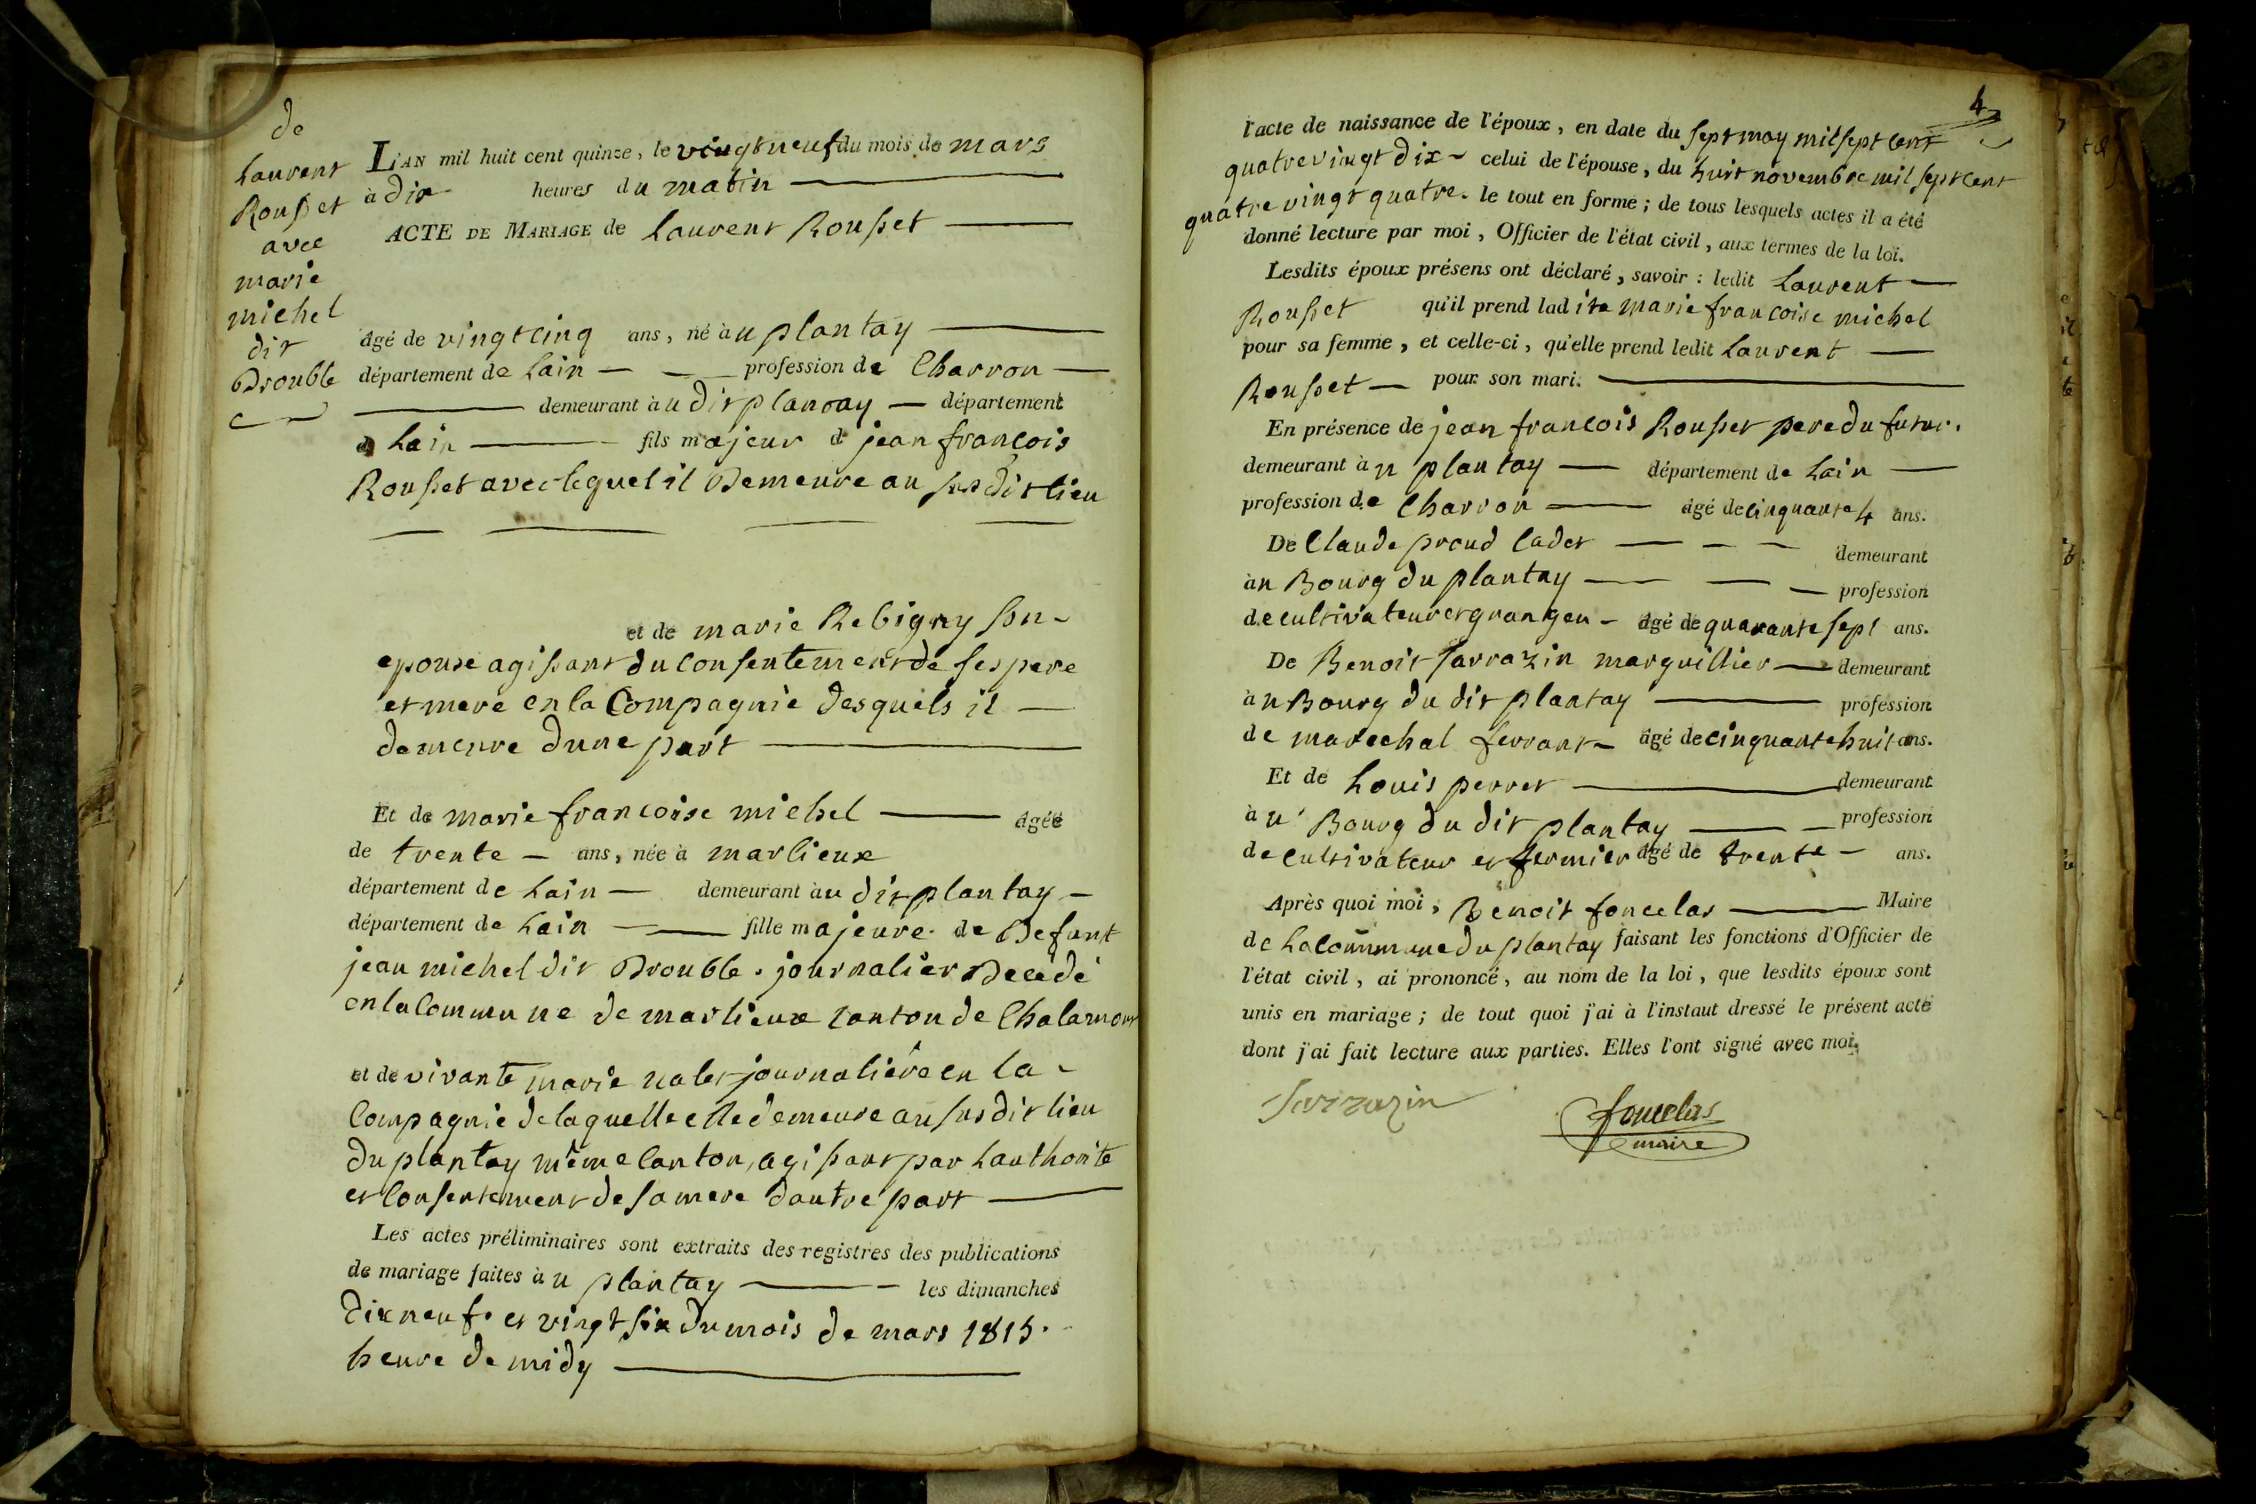 de
Laurent
Rousset
avec
marie
michel
dit
Drouble
L'AN mil huit cent quinze, le vingt neuf du mois de mars
à dix heures du matin
ACTE DE MARIAGE de Laurent Rousset
âgé de vingt cinq ans, né à u plantay
département de Lain profession de Charron
demeurant à u dit plantay département
de Lain fils majeur de jean francois
Rousset avec lequel il Demeure au susdit lieu
et de marie Rebigny son
epouse agissant du Consentement de ses pere
et mere en la Compagnie desquels il
demeure dune part
Et de marie francoise michel âgée
de trente ans, née à marlieux
département de Lain demeurant à u dit plantay
département de Lain fille majeure de Defunt
jean michel dit Drouble journalier Decédé
en la Commune de marlieux Canton de Chalamont
et de vivante marie journaliére en la
Compagnie de laquelle elle demeure au susdit lieu
du plantay même Canton, agissant par Lauthorité
et Consentement de sa mere dautre part
Les actes préliminaires sont extraits des registres des publications
de mariage faites à u plantay les dimanches
dix neuf et vingt six du mois de mars 1815.
heure de midy
4
l'acte de naissance de l'époux, en date du sept may mil sept cent
quatre vingt dix celui de l'épouse, du huit novembre mil sept cent
quatre vingt quatre. le tout en forme; de tous lesquels actes il a été
donné lecture par moi, Officier de l'état civil, aux termes de la loi.
Lesdits époux présens ont déclaré, savoir : ledit Laurent
Rousset qu'il prend ladite marie francoise michel
pour sa femme, et celle-ci, qu'elle prend ledit Laurent
Rousset pour son mari.
En présence de jean francois Rousset pere du futur.
demeurant à u plantay département de Lain
profession de Charron âgé de cinquante 4 ans.
De Claude proud Cadet demeurant
à u Bourg du plantay profession
de cultivateur et granger âgé de quarante sept ans.
De Benoit Sarrazin marguillier demeurant
à u Bourg du dit plantay profession
de marechal ferrant âgé de cinquante huit ans.
Et de Louis perret demeurant
à u Bourg du dit plantay profession
de cultivateur et fermier âgé de trente ans.
Après quoi moi, Benoit foncelas Maire
de La commune du plantay faisant les fonctions d'Officier de
l'état civil, ai prononcé, au nom de la loi, que lesdits époux sont
unis en mariage; de tout quoi j'ai à l'instaut dressé le présent acte
dont j'ai fait lecture aux parties. Elles l'ont signé avec moi.
Sarrazin foncelas
maire